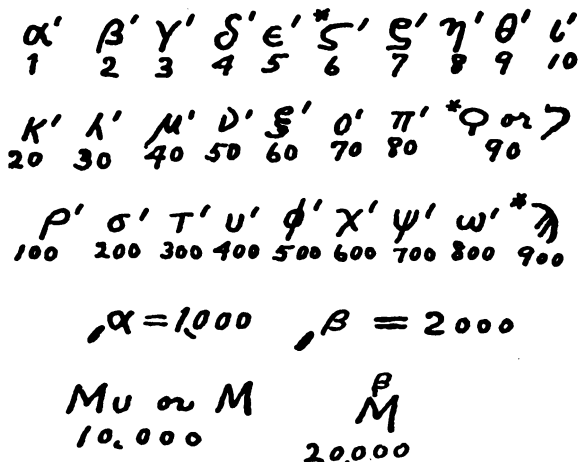 α′ β′ γ′ δ′ ε′ *ς′ ξ′ η′ θ′ ι′
1 2 3 4 5 6 7 8 9 10
κ′ λ′ μ′ ν′ ξ′ ο′ π′ *ϙ or
20 30 40 50 60 70 80 90
ρ′ σ′ τ′ υ′ ϕ′ χ′ ψ′ ω′ *ϡ
100 200 300 400 500 600 700 800 900
͵α = 1,000 ͵β = 2000
Mυ or M β
M
10,000 20,000